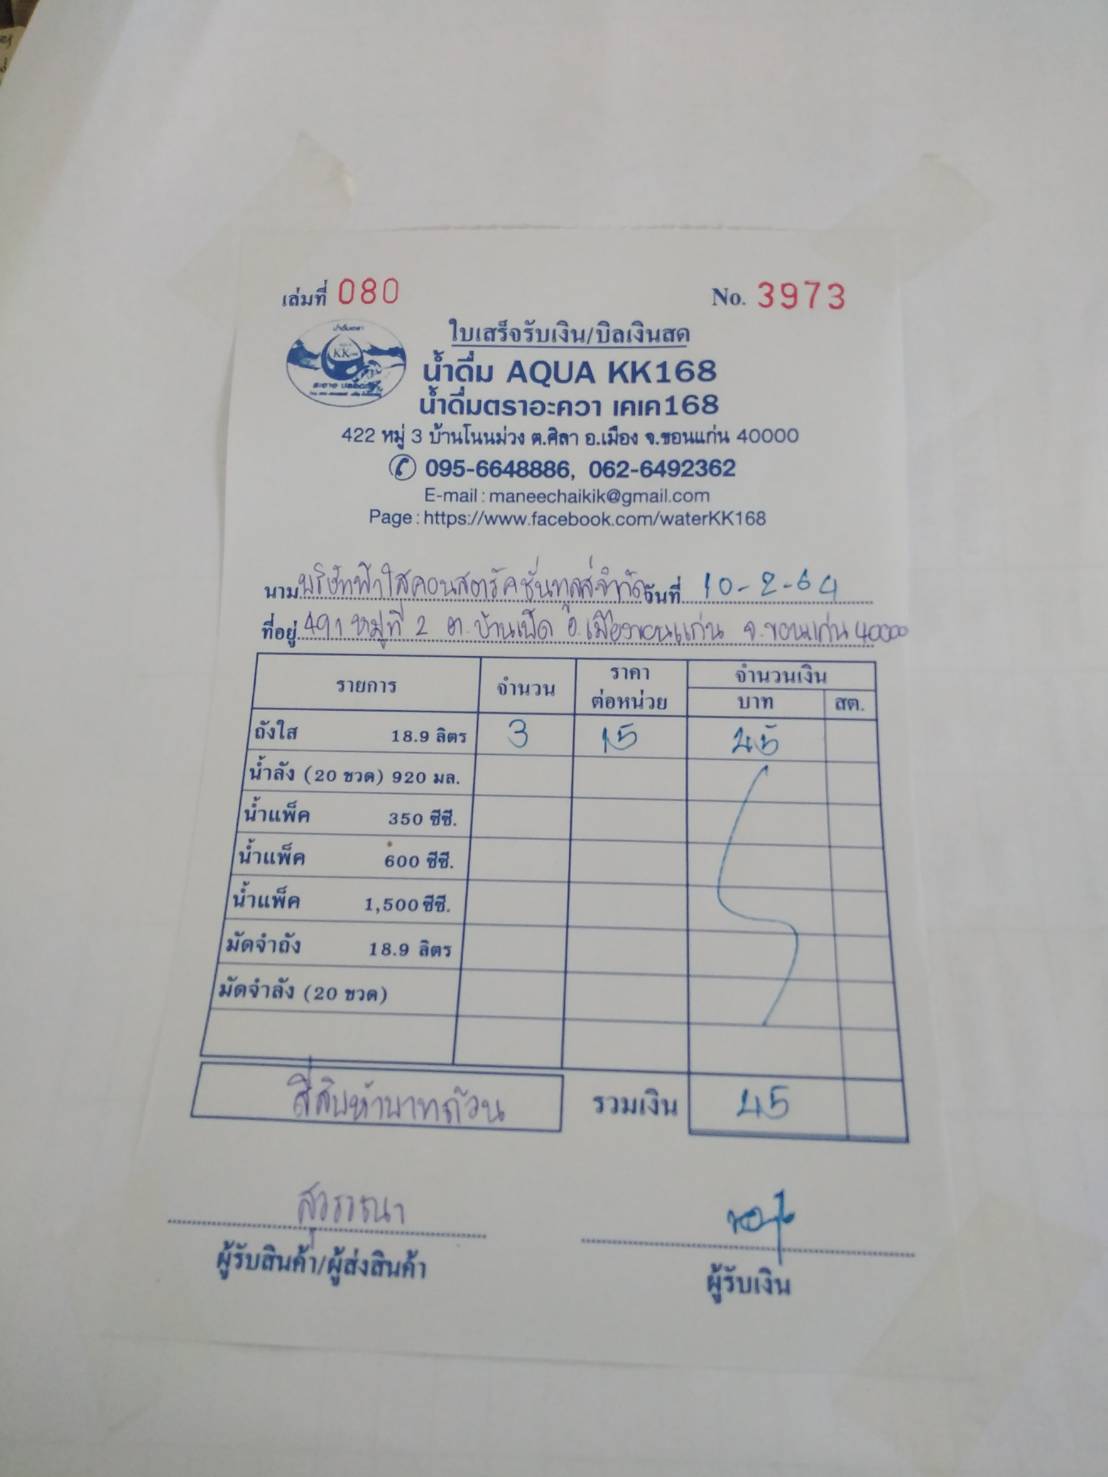 เล่มที่ 080 No. 3973
ใบเสร็จรับเงิน/บิลเงินสด
น้ำดื่ม AQUA KK168
น้ำดื่มตราอะควา เคเค168
422 หมู่ 3 บ้านโนนม่วง ต.ศิลา อ.เมือง จ.ขอนแก่น 40000
095-6648886, 062-6492362
E-mail : maneechaikik@gmail.com
Page : https://www.facebook.com/waterKK168
KK
นาม บริษัทฟ้าใสคอนสตรัคชั่นทูลส์จำกัด วันที่ 10-2-64
ที่อยู่ 491 หมู่ที่ 2 ต.บ้านเป็ด อ.เมืองขอนแก่น จ.ขอนแก่น 40000
รายการ จำนวน ราคาต่อหน่วย จำนวนเงิน
บาท สต.
ถังใส 18.9 ลิตร 3 15 45
น้ำลัง (20 ขวด) 920 มล.
น้ำแพ็ค 350 ซีซี.
น้ำแพ็ค 600 ซีซี.
น้ำแพ็ค 1,500 ซีซี.
มัดจำถัง 18.9 ลิตร
มัดจำลัง (20 ขวด)
สี่สิบห้าบาทถ้วน รวมเงิน 45
สุวรรณา
ผู้รับสินค้า/ผู้ส่งสินค้า ผู้รับเงิน